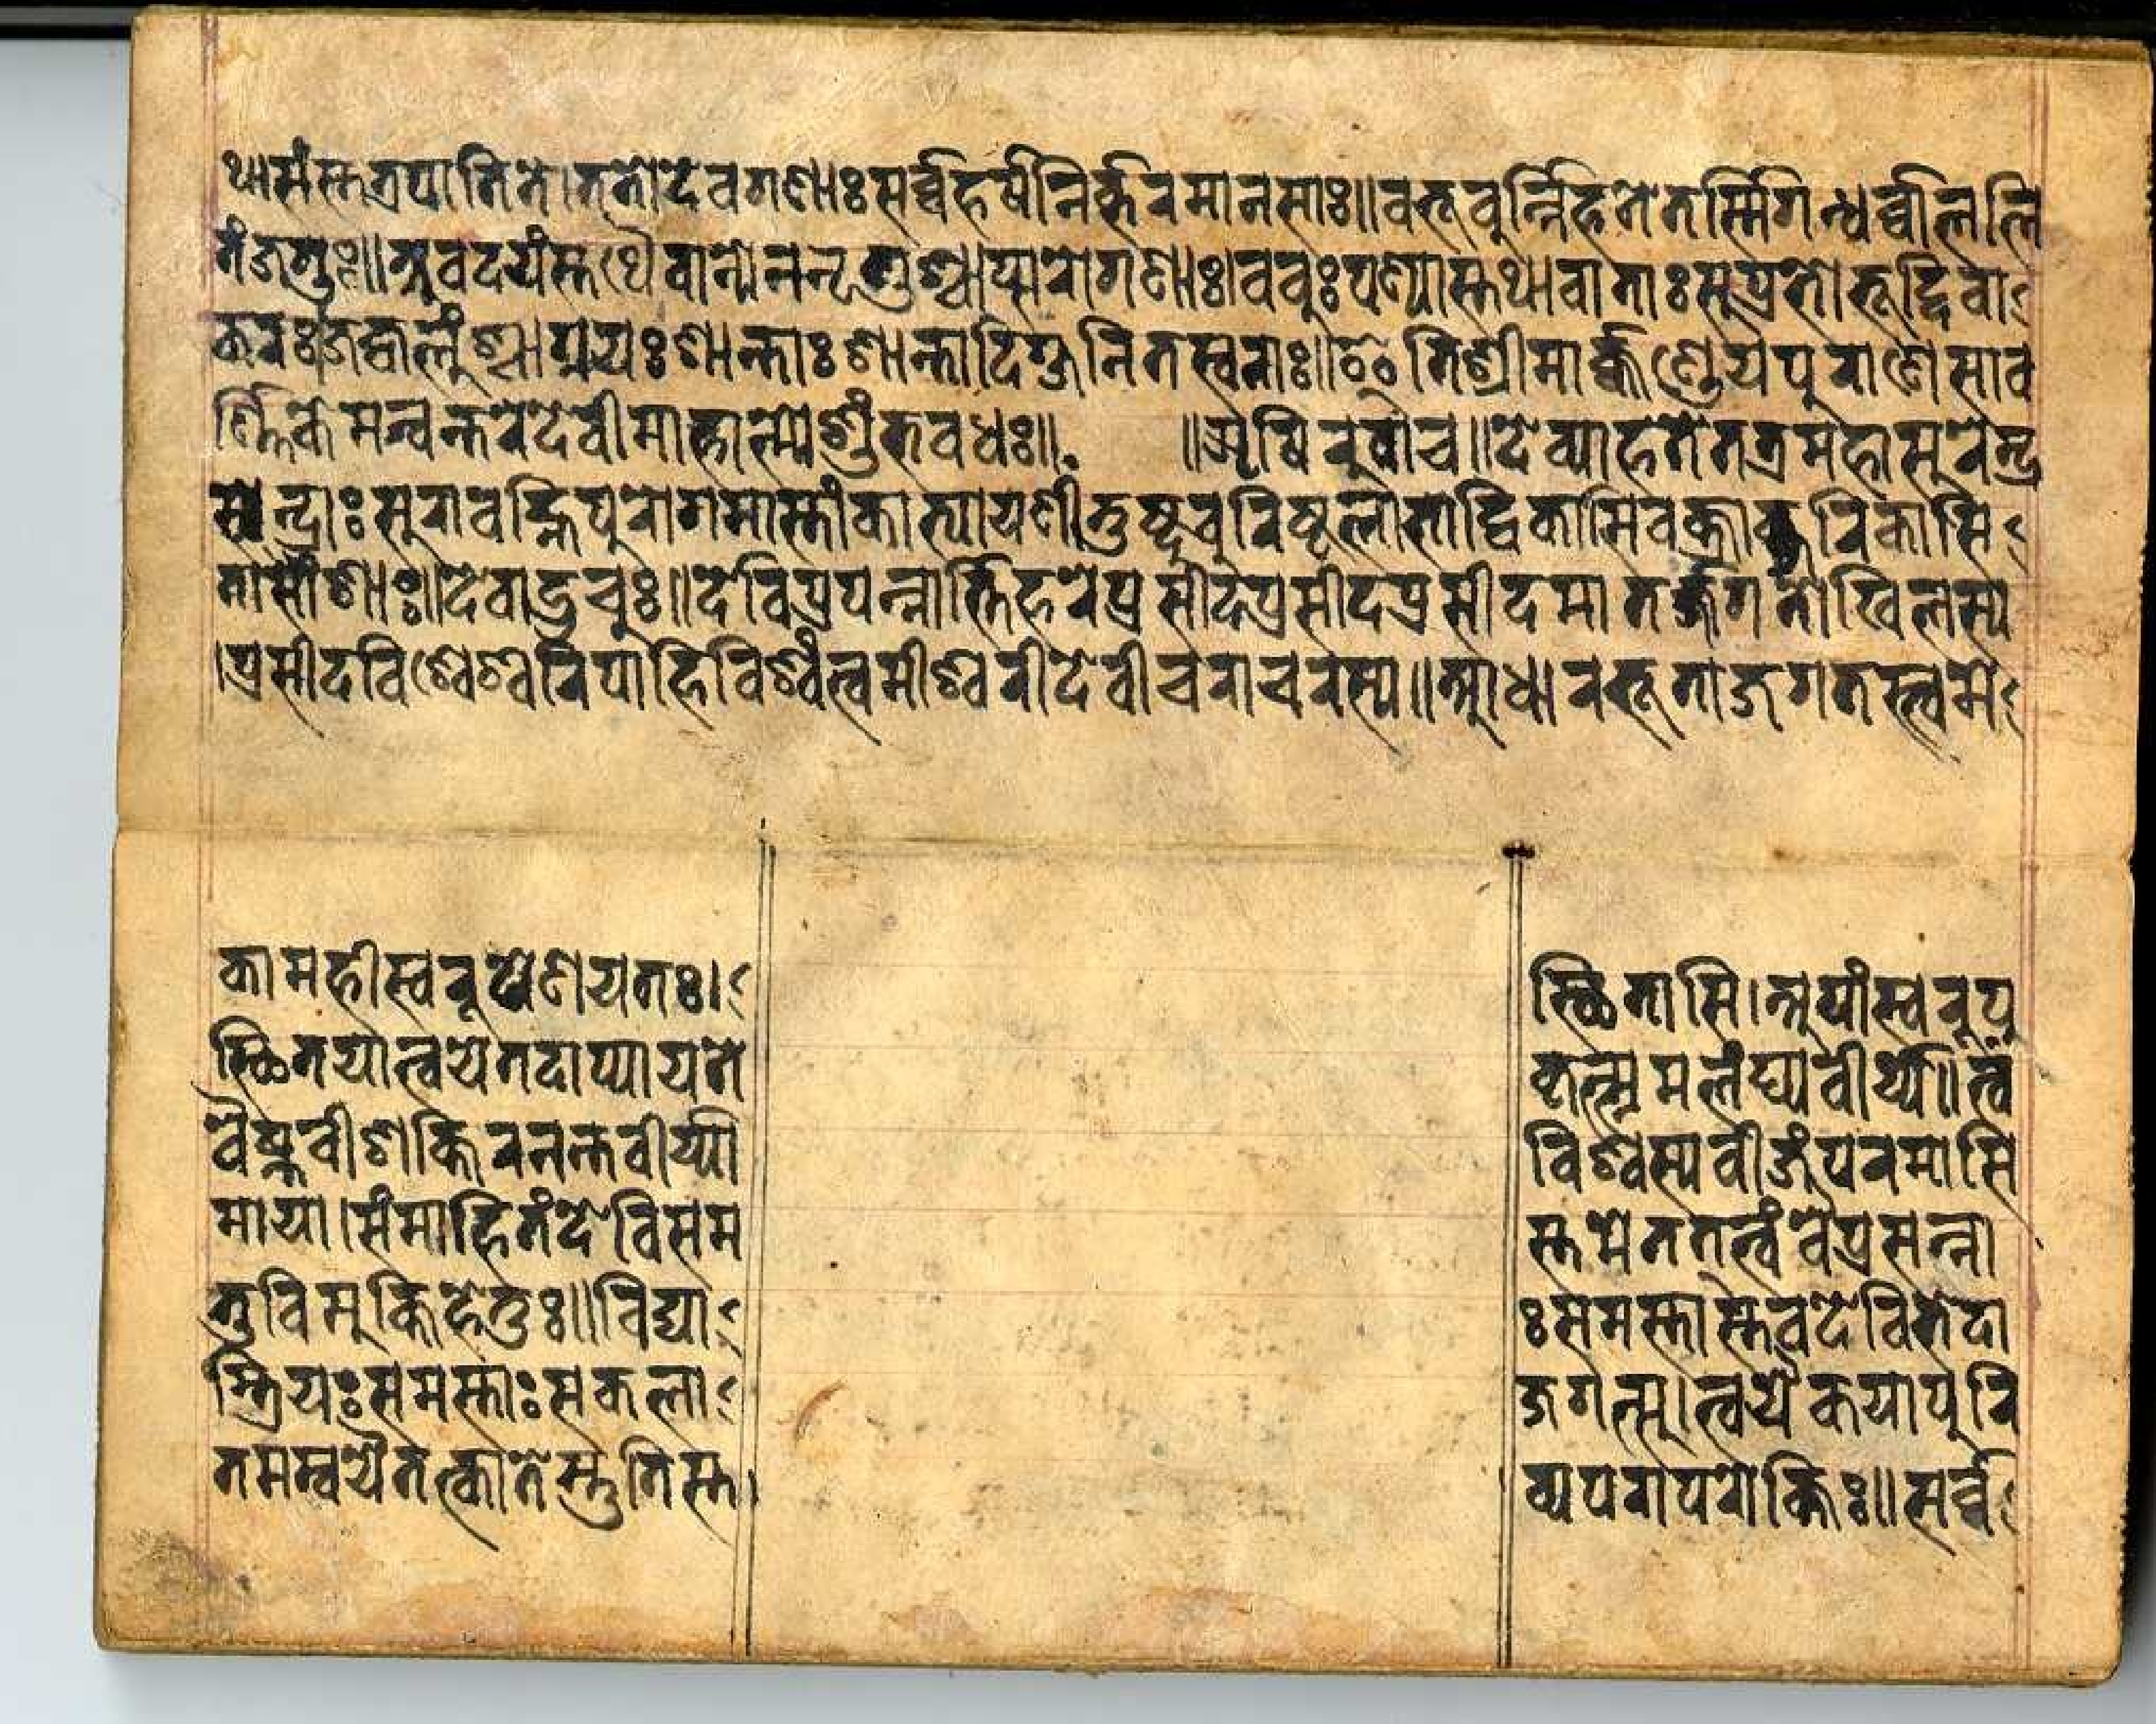 थासंस्तत्रपातिते।ततोदेवगणाःसर्व्वहर्षनिर्ब्भरमानसाः॥वभूवुर्न्निहतेतस्मिंगन्धर्व्वाललि
तंजगुः॥अवदयंस्तथैवान्येननृतुश्चाप्सरोगणाः।ववुःपण्यास्तथावाताःसुप्रभोभूद्दिवा
करःजज्वलुंश्चाग्नयःशान्ताःशान्तादिग्जनितस्वनाः॥इतिश्रीमार्क्कण्डेयपुराणेसाव
र्ण्णिकेमन्वन्तरेदेवीमाहात्म्येशुंभवधः॥ ॥ऋषिरुवाच॥देव्याहतेतत्रमहासुरेन्द्र
सेन्द्राःसुरावह्निपुरोगमास्तांकात्यायणीतुष्टुवुरिष्टलाभाद्विकासिवक्त्राब्जविकासि
तासाः॥देवाऊचुः॥देविप्रपन्नार्त्तिहरेप्रसीदप्रसीदप्रसीदमातर्ज्जगतोखिलस्य
।प्रसीदविश्वेश्वरिपाहिविश्वंत्वमीश्वरीदेवीचराचरस्य॥आधारभूताजगतस्त्वमे
कामहीस्वरूपेणयतः। स्थितासि।अपांस्वरूपु
स्थितयात्वयेतदाप्यायते कृत्स्नमलंघ्यवीर्य्ये॥त्वं
वैष्णवीशक्तिरनन्तवीर्य्या विश्वस्यवीजंपरमासि
माया।संमोहितंदेविसम स्तमेततत्त्वंवैप्रसन्ना
भुविमुक्तिहेतुः॥विद्या ःसमस्तास्तवदेविभेदा
स्त्रियःसमस्ताःसकला जगत्सु।त्वयैकयापुरि
तमम्वयैतत्कातेस्तुतिस्त व्यपरापरोक्तिः॥सर्व्व